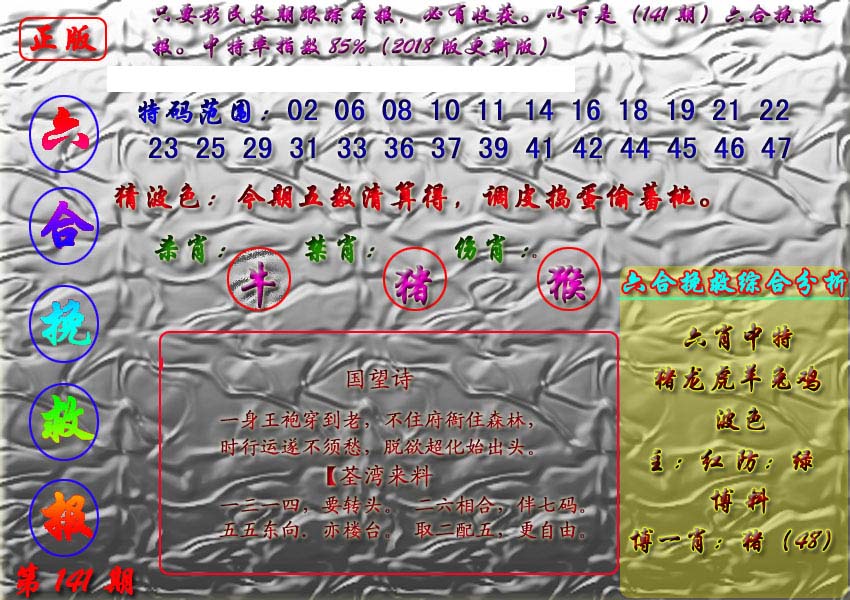 正版
只要彩民长期跟踪本报，必有收获。以下是（141期）六合挽救
报。中特率指数85%（2018版更新版）
六合挽救报
第141期
特码范围：02 06 08 10 11 14 16 18 19 21 22
23 25 29 31 33 36 37 39 41 42 44 45 46 47
猜波色：今期五数清算得，调皮捣蛋偷蕃桃。
杀肖：牛 禁肖：猪 伤肖：猴
国望诗
一身王袍穿到老，不住府衙住森林，
时行运遂不须愁，脱欲超化始出头。
【荃湾来料
一三一四，要转头。 二六相合，伴七码。
五五东向．亦楼台。 取二配五，更自由。
六合挽救综合分析
六肖中特
猪龙虎羊兔鸡
波色
主：红防：绿
博料
博一肖：猪（48）